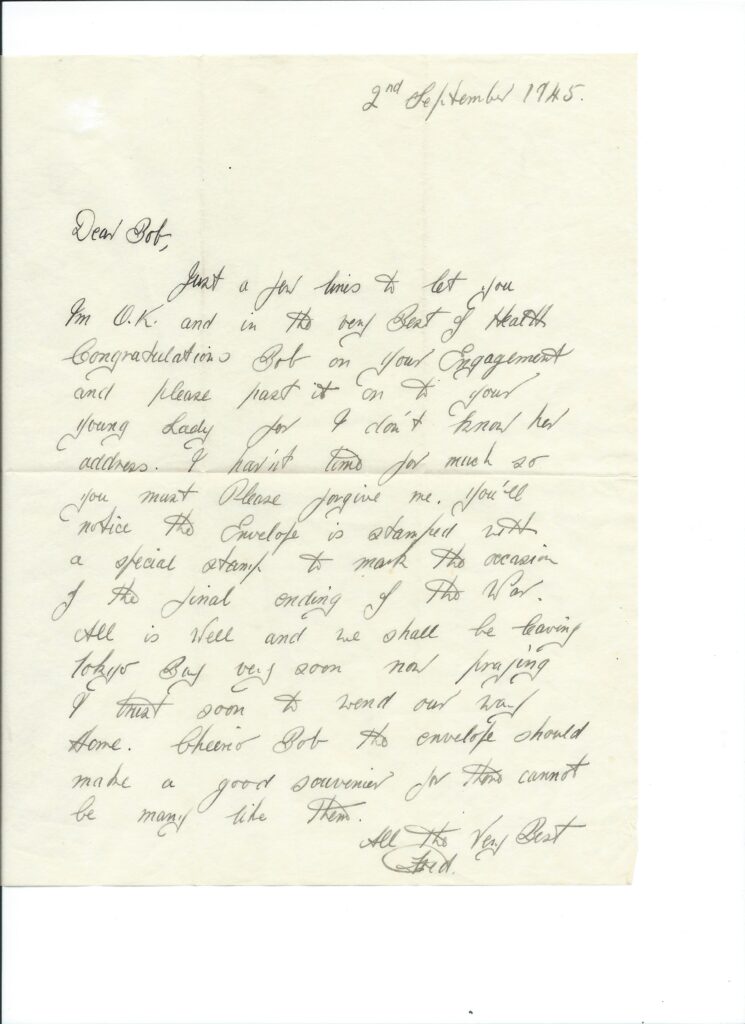 2nd September 1945.
Dear Bob,
Just a few lines to let you
Im O.K. and in the very Best of Health
Congratulations Bob on your Engagement
and please past it on to your
young Lady for I don't know her
address. I hav'nt time for much so
you must Please forgive me. You'll
notice the Envelope is stamped with
a special stamp to mark the occasion
of the final ending of the War.
All is Well and we shall be leaving
Tokyo Bay very soon now praying
I trust soon to wend our way
Home. Cheerio Bob the envelope should
make a good souvenier for there cannot
be many like them.
All The Very Best
Fred.